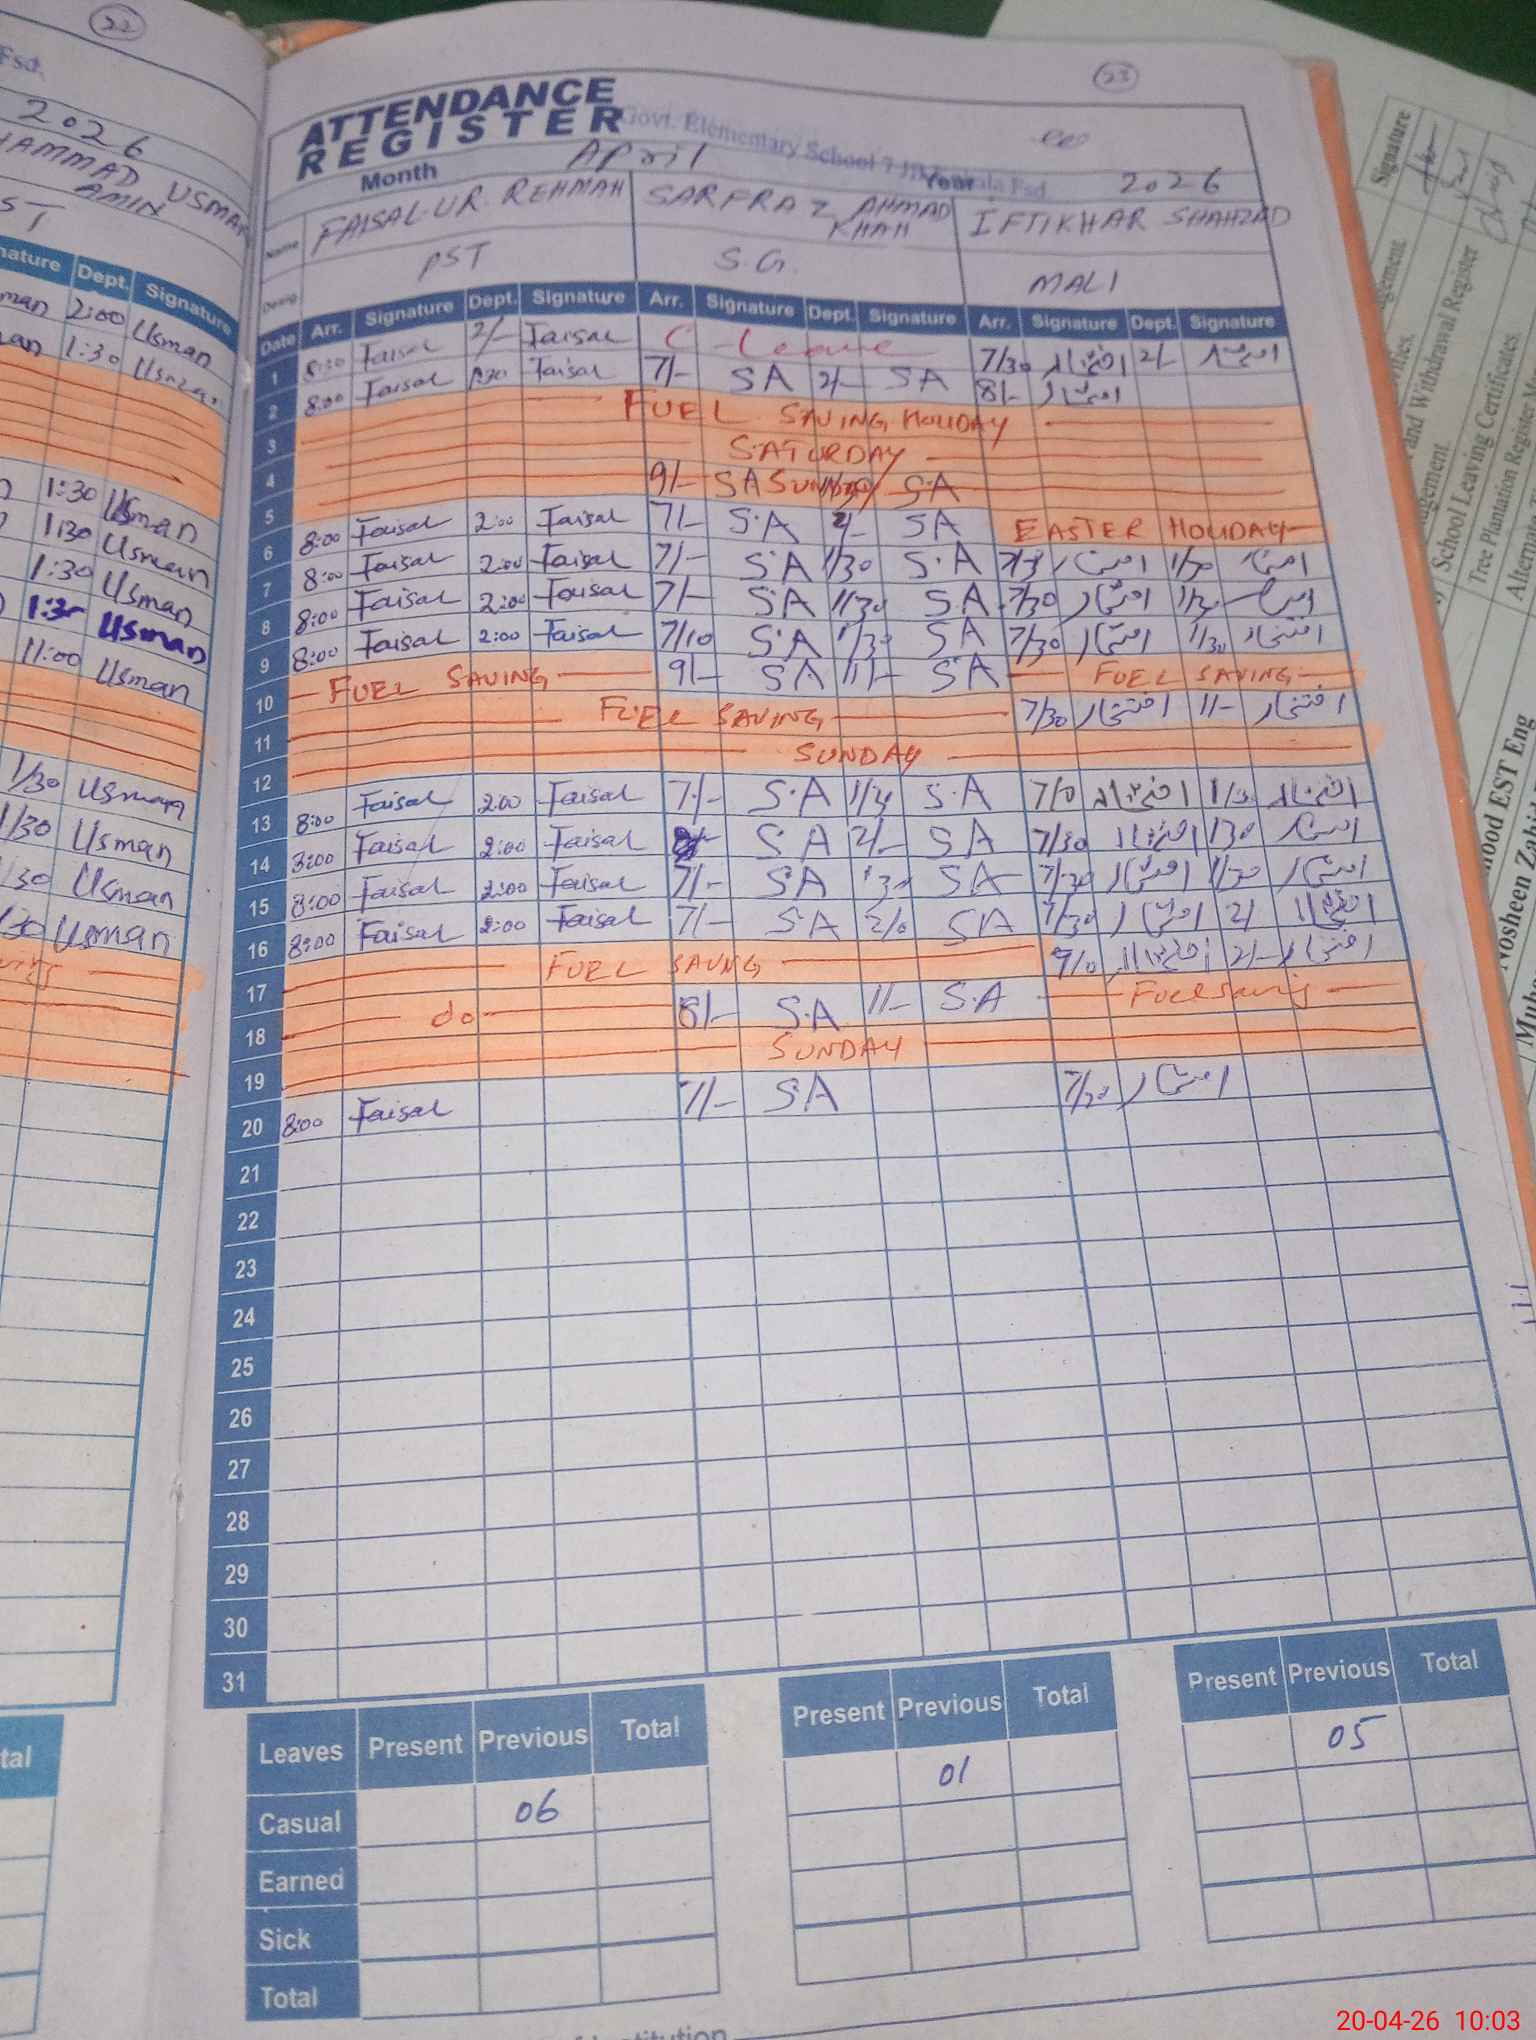 22
Fsd.
2026
HAMMAD USMAN
AMIN
ST
nature Dept. Signature
man 2:00 Usman
an 1:30 Usman
1:30 Usman
1:30 Usman
1:30 Usman
1:30 Usman
11:00 Usman
1/30 Usman
1/30 Usman
/30 Usman
/30 Usman
tal
23
ATTENDANCE
REGISTER
Govt. Elementary School 7 JB Fsd.
Month April Year 2026
Name FAISAL-UR-REHMAN SARFRAZ AHMAD KHAN IFTIKHAR SHAHZAD
Desig. PST S.G. MALI
Date Arr. Signature Dept. Signature Arr. Signature Dept. Signature Arr. Signature Dept. Signature
1 8:00 Faisal 2/- Faisal C-Leave 7/30 افتخار 2/- افتخار
2 8:00 Faisal 1:30 Faisal 7/- SA 2/- SA 8/- افتخار
3 FUEL SAVING HOLIDAY
4 SATURDAY
5 9/- SA SUNDAY SA
6 8:00 Faisal 2:00 Faisal 7/- S.A 2/- SA EASTER HOLIDAY
7 8:00 Faisal 2:00 Faisal 7/- S.A 1/30 S.A 7/30 افتخار 1/30 افتخار
8 8:00 Faisal 2:00 Faisal 7/- SA 1/30 SA 7/30 افتخار 1/30 افتخار
9 8:00 Faisal 2:00 Faisal 7/10 S.A 1/30 SA 7/30 افتخار 1/30 افتخار
10 FUEL SAVING 9/- SA 11/- SA FUEL SAVING
11 FUEL SAVING 7/30 افتخار 11/- افتخار
12 SUNDAY
13 8:00 Faisal 2:00 Faisal 7/- S.A 1/30 S.A 7/0 افتخار 1/30 افتخار
14 8:00 Faisal 2:00 Faisal S.A 2/- SA 7/30 افتخار 1/30 افتخار
15 8:00 Faisal 2:00 Faisal 7/- SA 1/30 SA 7/30 افتخار 1/30 افتخار
16 8:00 Faisal 2:00 Faisal 7/- SA 2/0 SA 7/30 افتخار 2/ افتخار
17 FUEL SAVNG 9/0 افتخار 2/- افتخار
18 do 8/- S.A 11/- S.A Fuel saving
19 SUNDAY
20 8:00 Faisal 7/- S.A 7/30 افتخار
21
22
23
24
25
26
27
28
29
30
31
Leaves Present Previous Total Present Previous Total Present Previous Total
Casual 06 01 05
Earned
Sick
Total
Signature
and Withdrawal Register
School Leaving Certificates
Tree Plantation Register
EST Eng
Nosheen
20-04-26 10:03